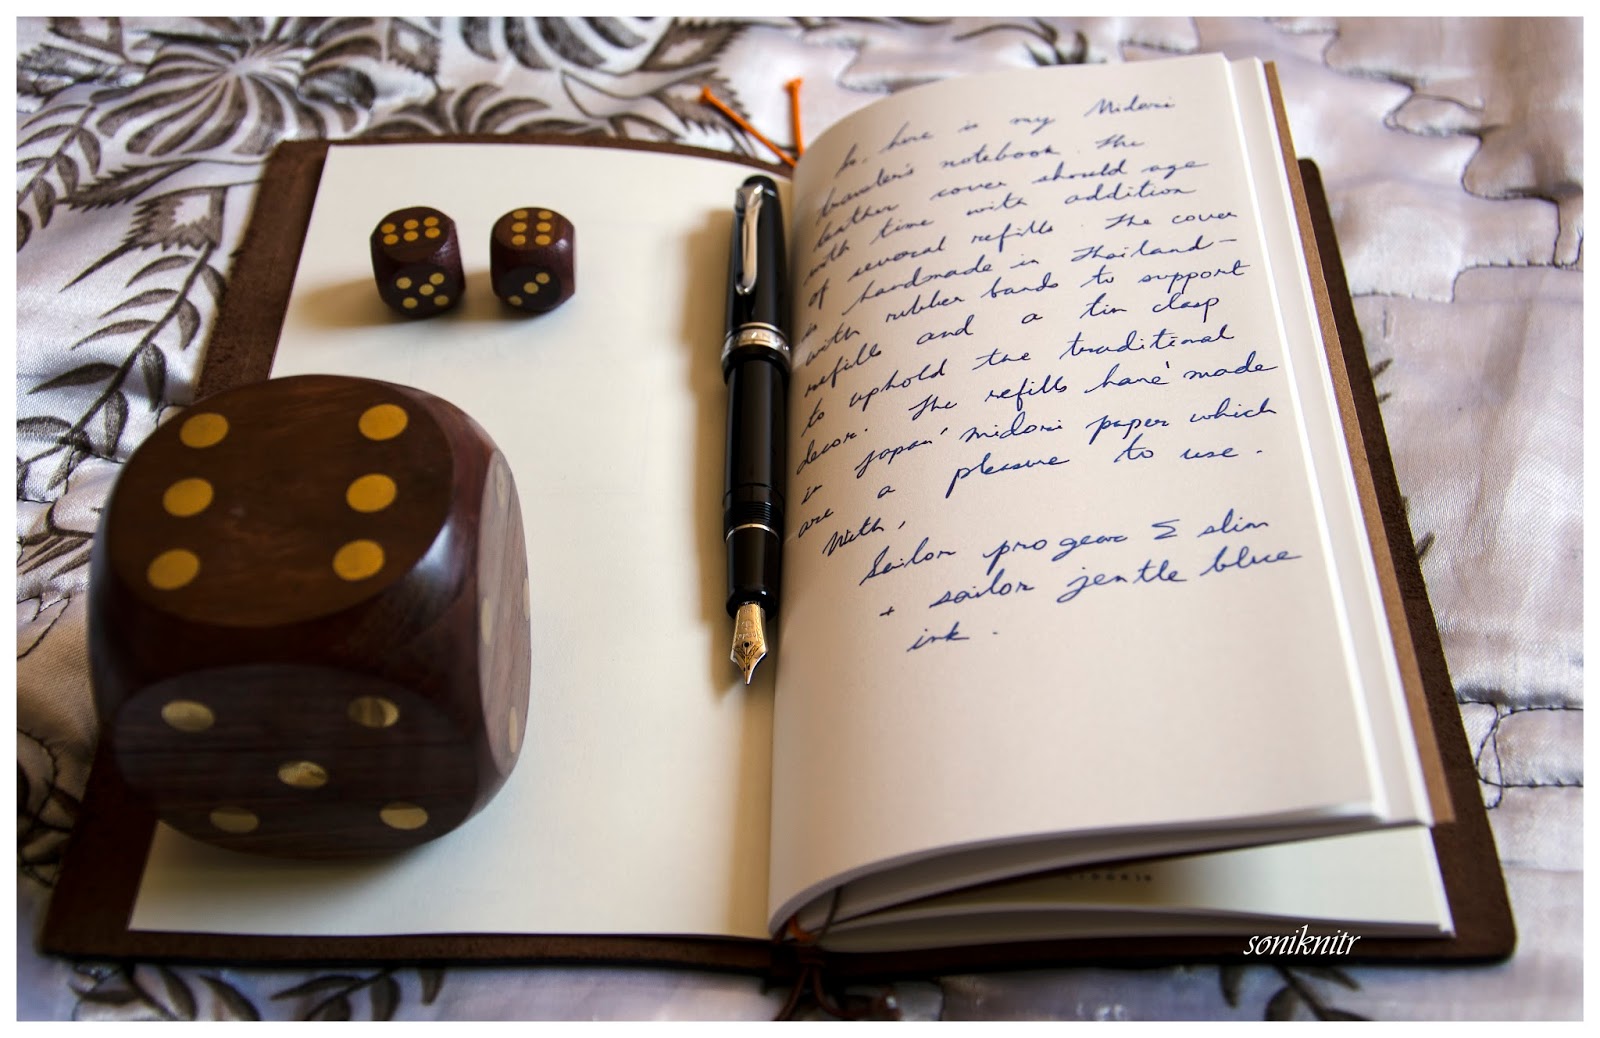 So, here is my Midori
traveler's notebook. The
leather cover should age
with time with addition
of several refills. The cover
is handmade in Thailand –
with rubber bands to support
refills and a tin clasp
to uphold the traditional
decor. The refills have 'made
in Japan' midori paper which
are a pleasure to use.
With,
Sailor pro gear Σ slim
+ sailor jentle blue
ink.
soniknitr